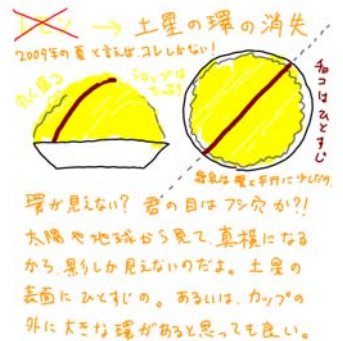 レモン → 土星の環の消失
2009年の夏と言えば、コレしかない!
シロップは
チョコはひとすじ
環が見えない? 君の目はフシ穴か?!
太陽や地球から見て、真横になる
から、影しか見えないのだよ。土星の
表面にひとすじの。あるいは、カップの
外に大きな環があると思っても良い。